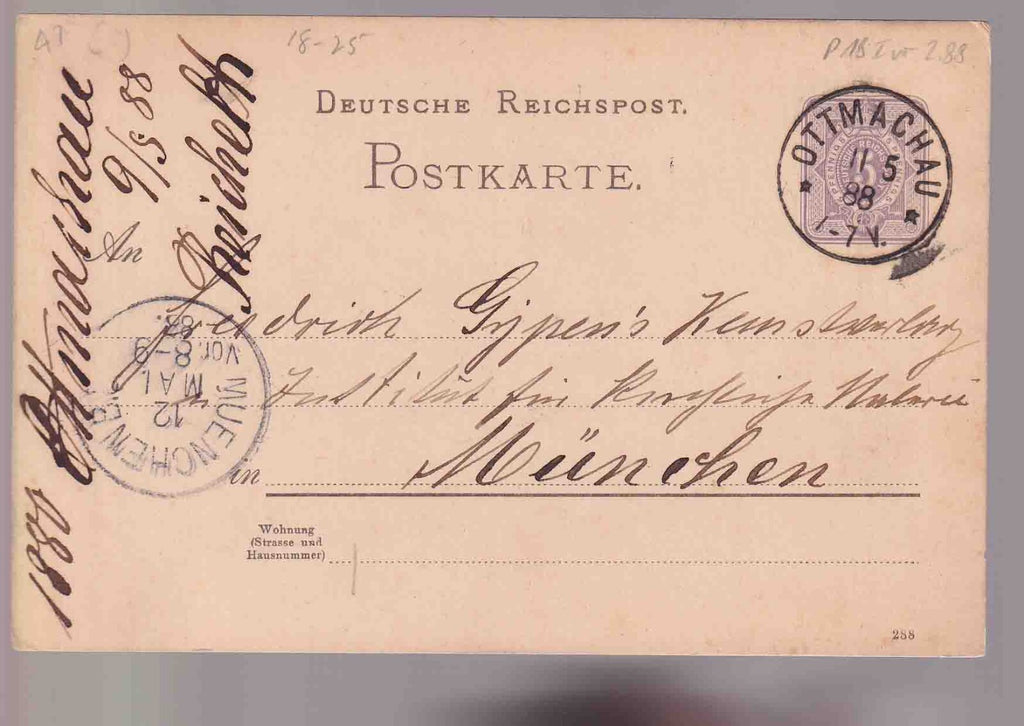 18-25
P 18 I 2.88
DEUTSCHE REICHSPOST.
POSTKARTE.
OTTMACHAU
11 5
88
1-7 N.
5
PFENNIG
An
Friedrich Gypen's Kunstverlag
Institut für kirchliche Malerei
in München
Wohnung
(Strasse und
Hausnummer)
288
MUENCHEN
12
MAI
8-9
Vor.
88.
Ottmachau
9/5 88
Reichelt